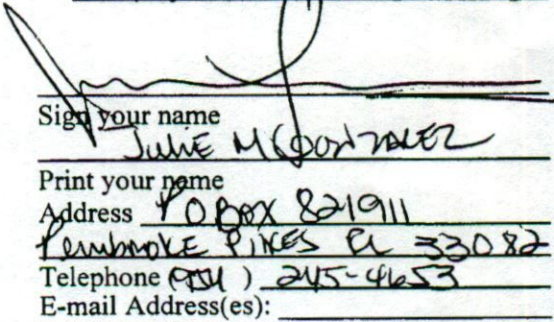 Sign your name
Julie M Gonzalez
Print your name
Address PO Box 821911
Pembroke Pines FL 33082
Telephone (954) 245-4653
E-mail Address(es):